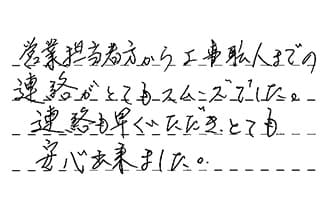 営業担当者方から工事職人までの
連絡がとてもスムーズでした。
連絡も早くいただき、とても
安心出来ました。